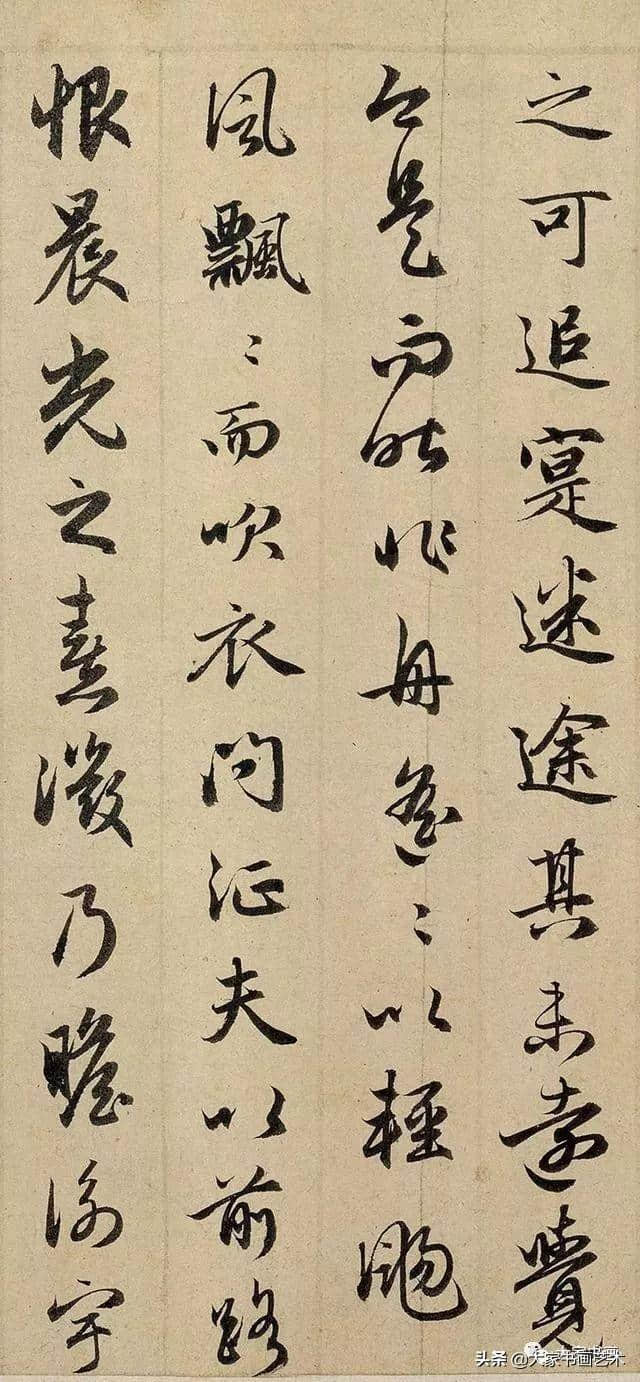 之可追寔迷途其未遠覺
今是而昨非舟遙〻以輕颺
風飄〻而吹衣問征夫以前路
恨晨光之熹微乃瞻衡宇
头条 @大家书画艺术